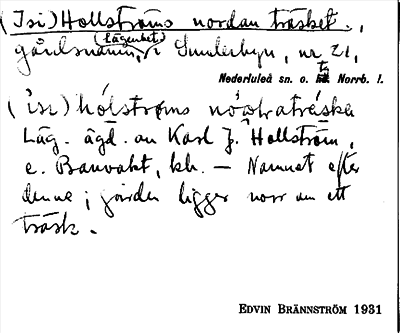 (Isi) Hollströms nordan träsket.,
(Lägenhet)
gårdsnamn, i Sunderbyn, nr 21,
Nederluleå sn. o. tg Norrb. l.
(ìsi) hólströms nòḷatrǽske
Läg. ägd. av Karl J. Hollström,
e. Banvakt, kb. — Namnet efter
denne; gården ligger norr om ett
träsk.
EDVIN BRÄNNSTRÖM 1931